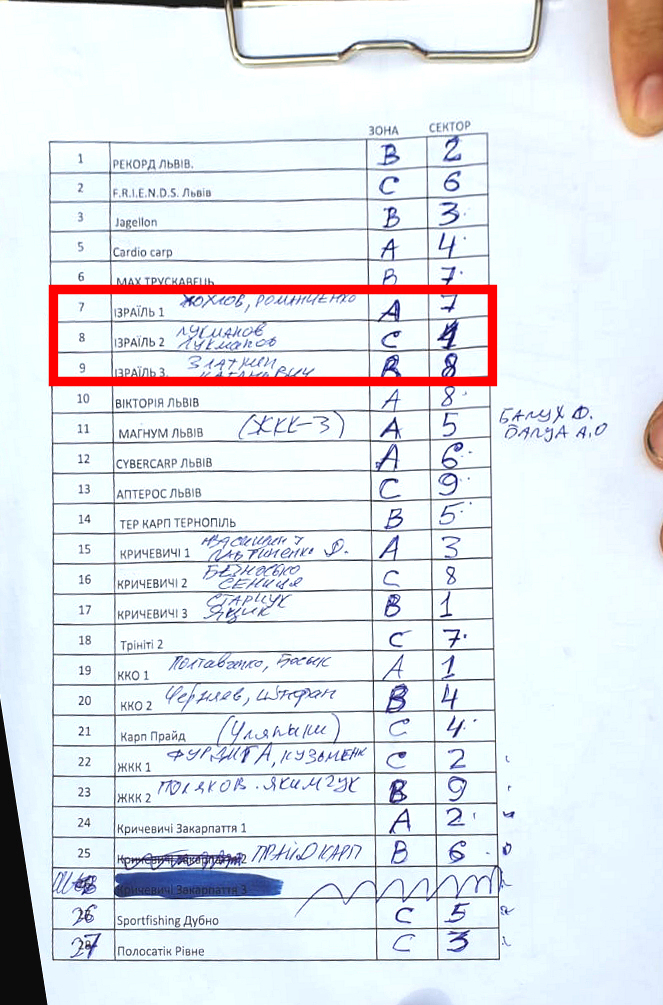 ЗОНА СЕКТОР
1 РЕКОРД ЛЬВІВ. B 2
2 F.R.I.E.N.D.S. Львів C 6
3 Jagellon B 3
5 Cardio carp A 4
6 МАХ ТРУСКАВЕЦЬ B 7
7 ІЗРАЇЛЬ 1 ХОХЛОВ, РОМАНЧЕНКО A 7
ЛУКМАНОВ
8 ІЗРАЇЛЬ 2 ЛУКМАНОВ C
ЗЛАТКИН
9 ІЗРАЇЛЬ 3. КАГАНОВИЧ B 8
10 ВІКТОРІЯ ЛЬВІВ A 8
11 МАГНУМ ЛЬВІВ (ЖКК-3) A 5
БАЛУХ Ф.
БАЛУХ А.О
12 CYBERCARP ЛЬВІВ A 6
13 АПТЕРОС ЛЬВІВ C 9
14 ТЕР КАРП ТЕРНОПІЛЬ B 5
15 КРИЧЕВИЧІ 1 Д. A 3
16 КРИЧЕВИЧІ 2 СЕНИЦЯ C 8
СТАРЧУК
17 КРИЧЕВИЧІ 3 ЯЩИК B 1
18 Трініті 2 C 7
19 ККО 1 A 1
20 ККО 2 Черняев, Штефан B 4
21 Карп Прайд C 4
22 ЖКК 1 КУЗЬМЕНК C 2
23 ЖКК 2 ПОЛЯКОВ. ЯКИМЧУК B 9
24 Кричевичі Закарпаття 1 A 2
25 ПРАЙД КАРП B 6
Кричевичі Закарпаття 3
26 Sportfishing Дубно C 5
27 Полосатік Рівне C 3